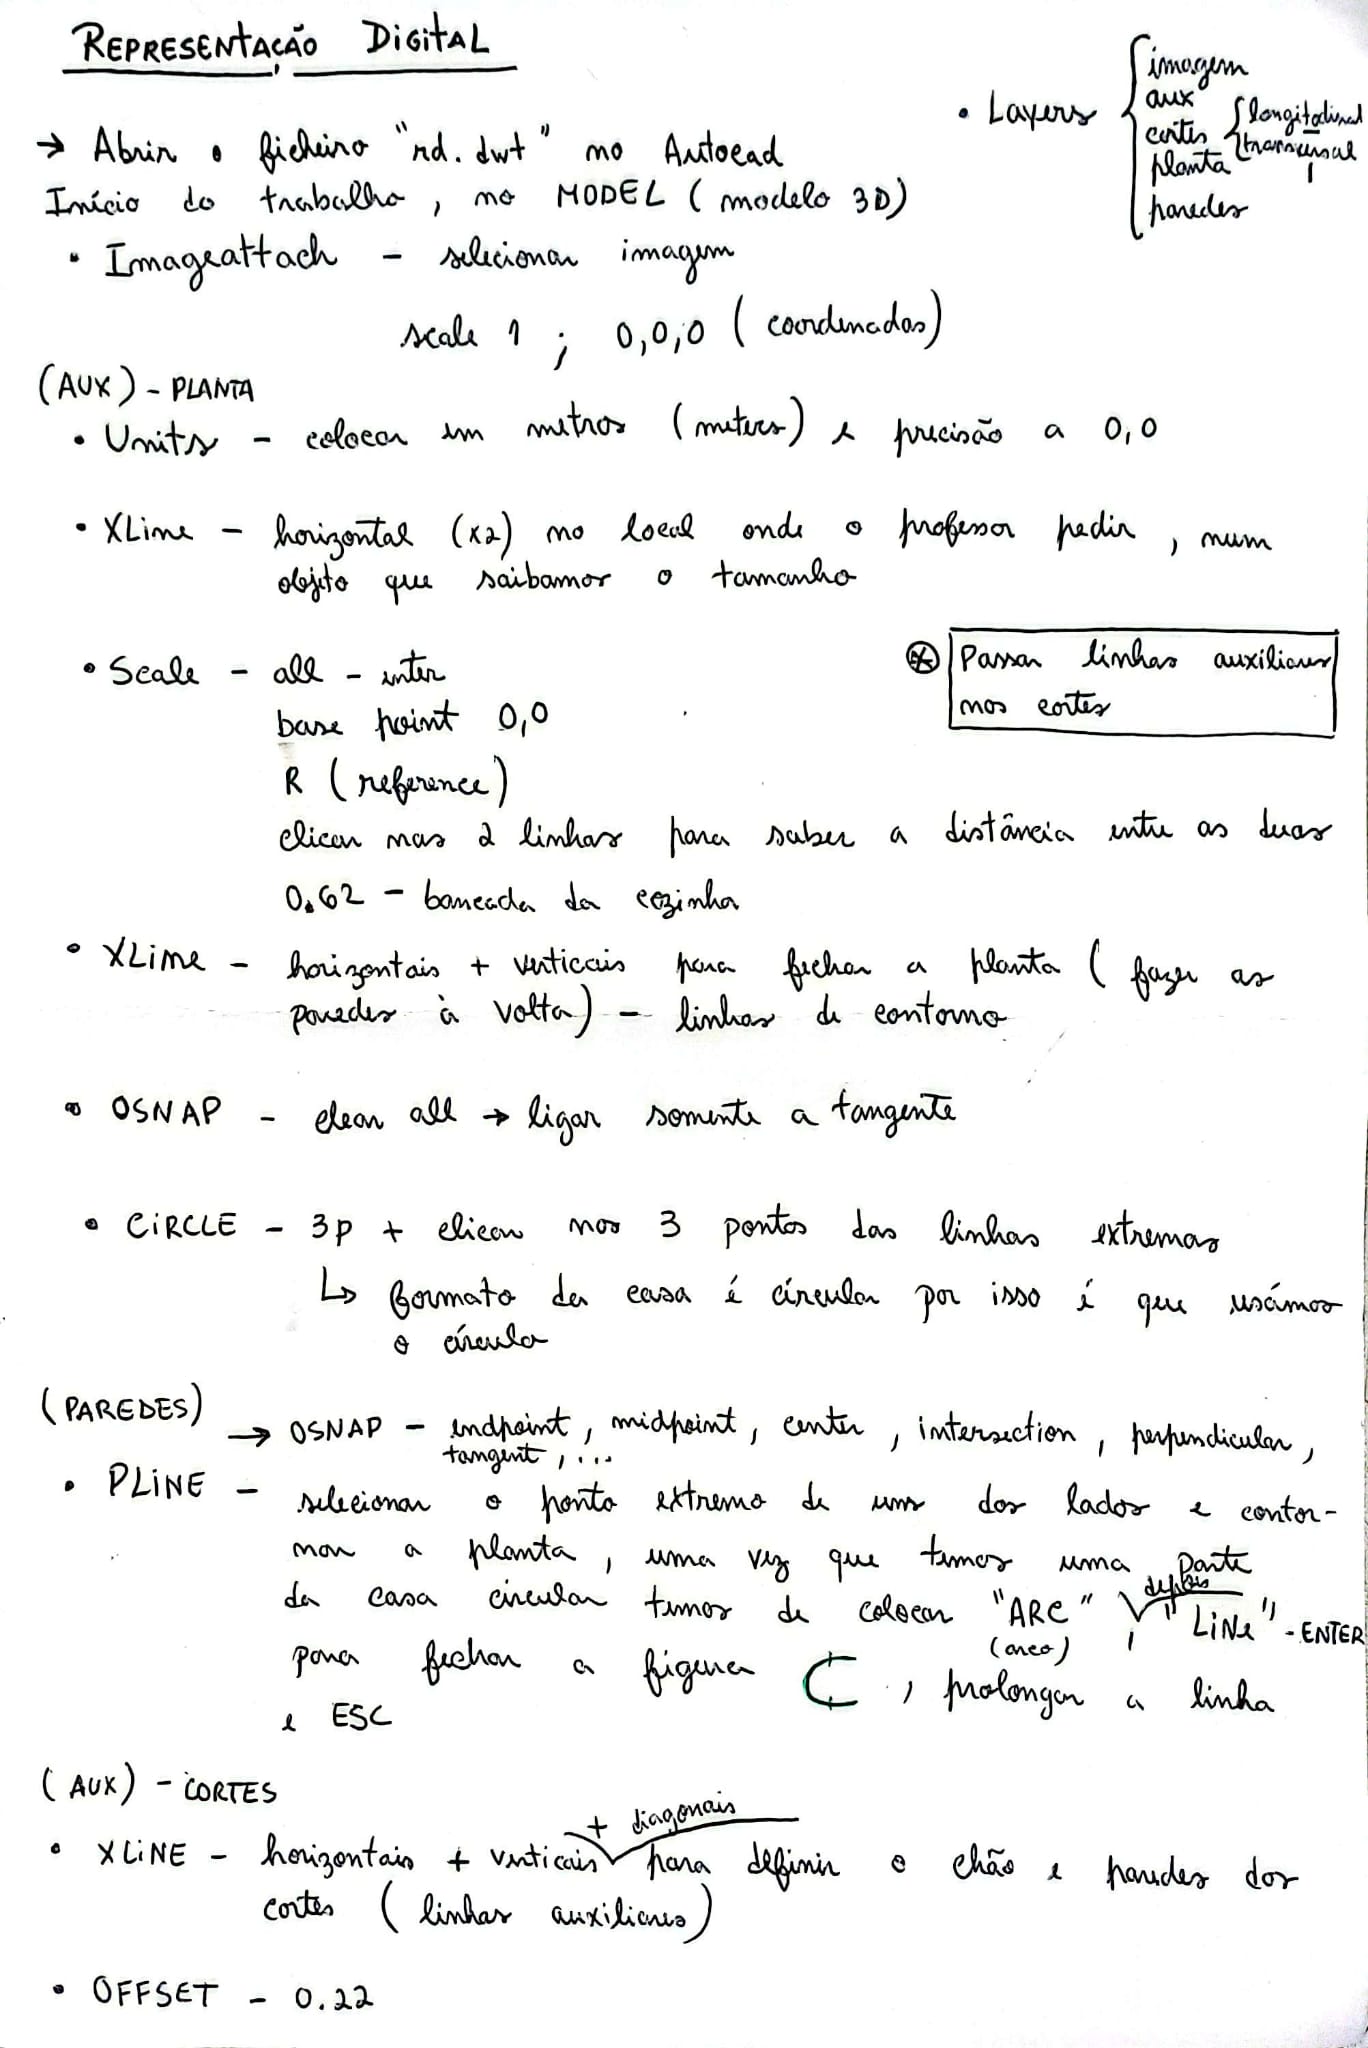 REPRESENTAÇÃO DIGITAL
• Layers { imagem
aux
cortes { longitudinal
transversal
planta
paredes
→ Abrir o ficheiro "rd.dwt" no Autocad
Início do trabalho, no MODEL (modelo 3D)
• Imageattach - selecionar imagem
scale 1 ; 0,0,0 (coordenadas)
(AUX) - PLANTA
• Units - colocar em metros (meters) e precisão a 0,0
• XLine - horizontal (x2) no local onde o professor pedir, num
objeto que saibamos o tamanho
• Scale - all - enter
base point 0,0
R (reference)
⊛ Passar linhas auxiliares
nos cortes
clicar nas 2 linhas para saber a distância entre as duas
0.62 - bancada da cozinha
• XLine - horizontais + verticais para fechar a planta (fazer as
paredes à volta) - linhas de contorno
• OSNAP - clear all → ligar somente a tangente
• CIRCLE - 3p + clicar nos 3 pontos das linhas extremas
↳ formato da casa é circular por isso é que usámos
o círculo
(PAREDES)
→ OSNAP - endpoint, midpoint, center, intersection, perpendicular,
tangent, ...
• PLINE - selecionar o ponto extremo de um dos lados e contor-
nar a planta, uma vez que temos uma parte
da casa circular temos de colocar "ARC" (arco), depois "LINE" - ENTER
para fechar a figura C, prolongar a linha
e ESC
(AUX) - CORTES
• XLINE - horizontais + verticais + diagonais para definir o chão e paredes dos
cortes (linhas auxiliares)
• OFFSET - 0.22